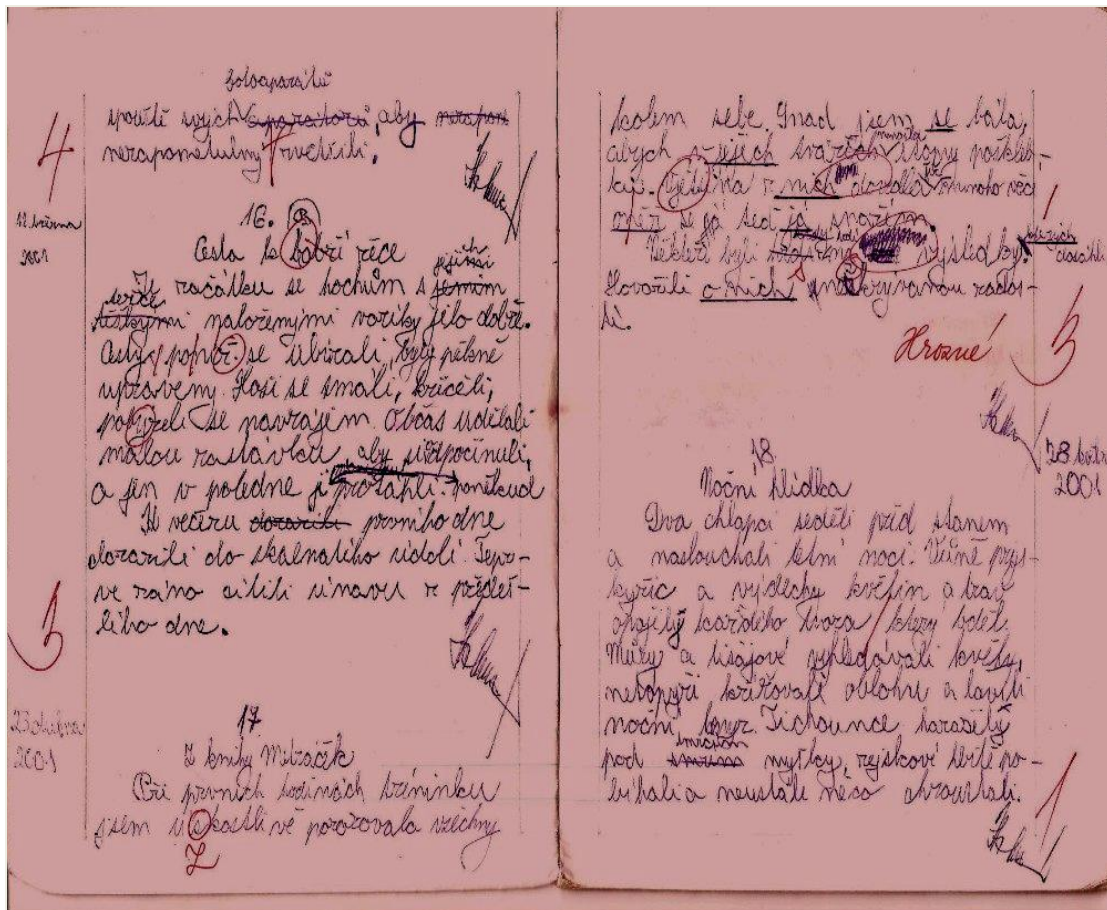 fotoaparátů
spouště svých aparátorů, aby nezapom
nezapomenutelný zvěčnili.
4
12. března
2001
16.
B
Cesta k bobří řece
jejich
Ze začátku se hochům s jemini
těžce
těžkými naloženými vozíky jelo dobře.
Cesty, po nož se ubírali, byly pěkně
upraveny. Hoši se smáli, křičeli,
pokřeli se navzájem. Občas udělali
malou zastávku, aby si odpočinuli,
a jen v poledne ji protáhli. poněkud
K večeru dorazili prvního dne
dorazili do skalnatého údolí. Tepr-
ve ráno cítili únavu z předeš-
lého dne.
3
23 dubna
2001
17
Z knihy Metráček
Při prvních hodinách tréninku
jsem úskostlivě pozorovala všechny
Z
kolem sebe. Snad jsem se bála,
abych v jejich tvářích stopy pošklеb-
nenašla
ků. Ještě na z nich dovedla mnoho věcí
se já teď já snažím.
Někteří byli výsledky.
kterých
dosáhli
Hovořili o nich s neskrývanou rados-
tí.
Hrozné
3
28. květn
2001
18.
Noční hlídka
Dva chlapci seděli před stanem
a naslouchali letní noci. Vůně prys-
kyřic a výdechy květin a trav
opojily každého tvora, který bděl.
Můry a lišajové vyhledávali květy,
netopýři křižovali oblohu a lovili
noční hmyz. Tichounce harašily
smrčím
pod smrum myšky, rejskové hbitě po-
bíhali a neustále něco chroustali.
1